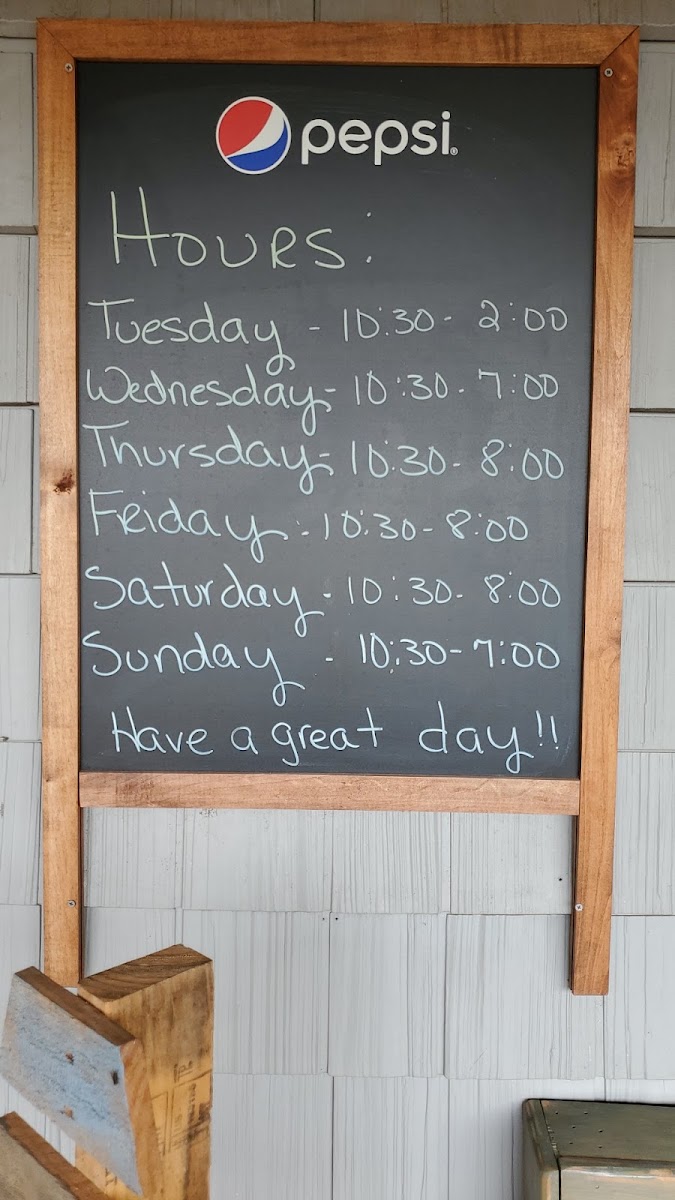 pepsi
Hours:
Tuesday - 10:30 - 2:00
Wednesday - 10:30 - 7:00
Thursday - 10:30 - 8:00
Friday - 10:30 - 8:00
Saturday - 10:30 - 8:00
Sunday - 10:30 - 7:00
Have a great day!!